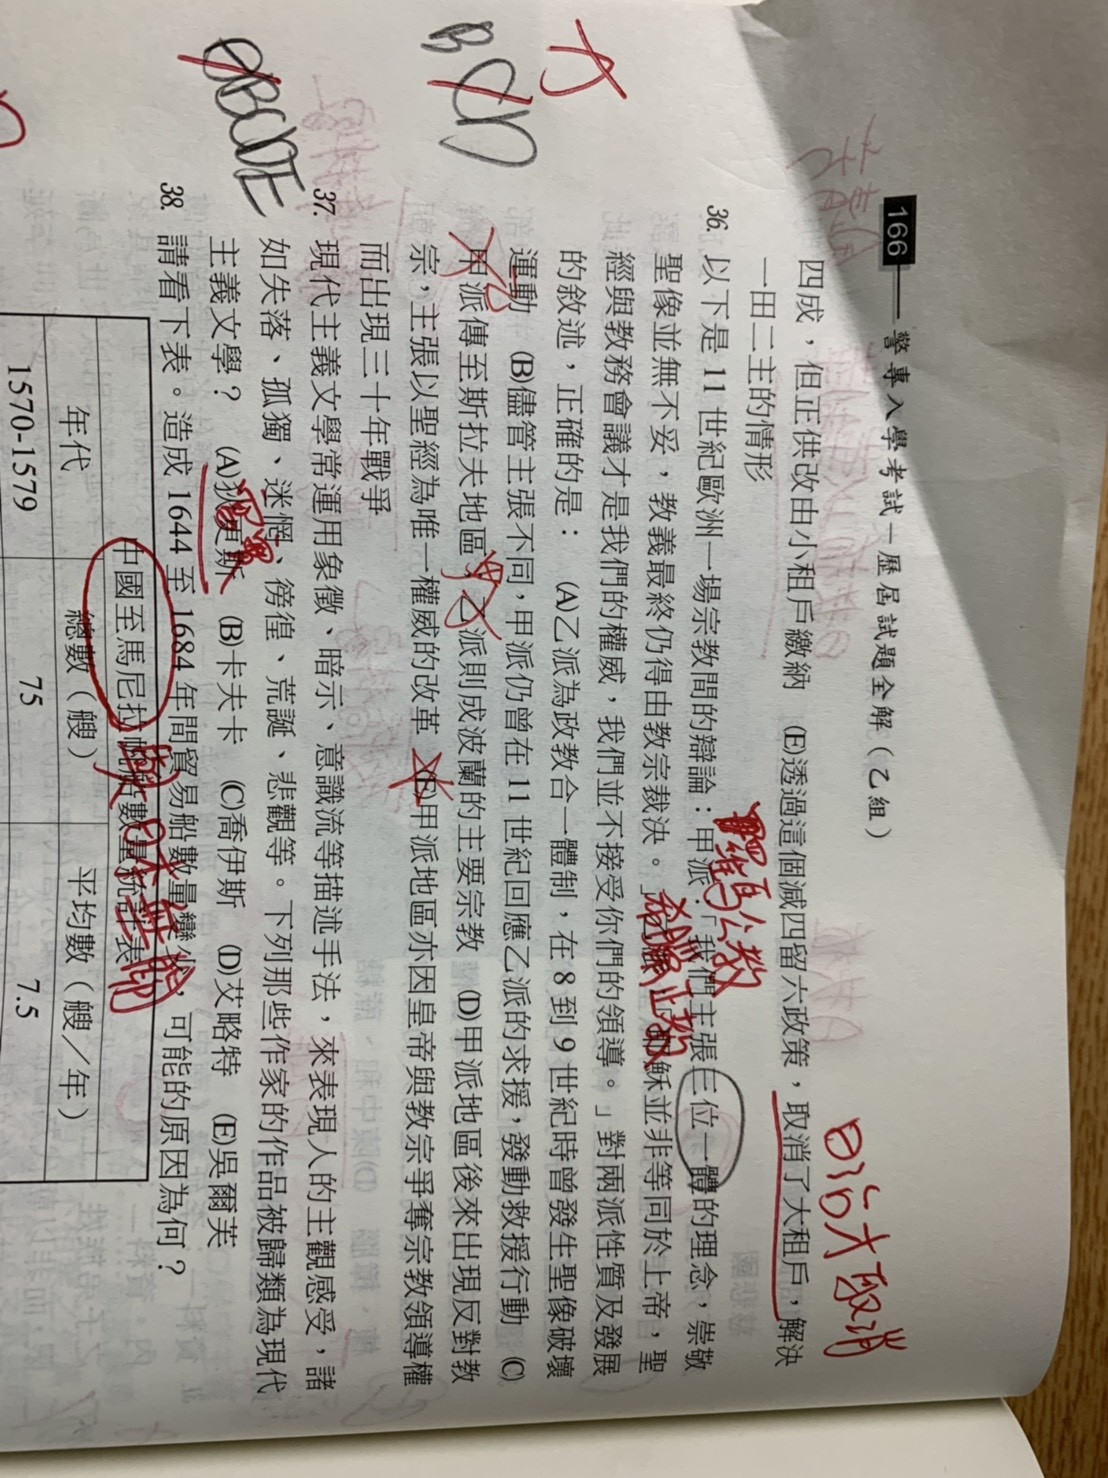 166 警專入學考試－歷屆試題全解（乙組）
四成，但正供改由小租戶繳納 (E)透過這個減四留六政策，取消了大租戶，解決
一田二主的情形
日治才取消
36. 以下是 11 世紀歐洲一場宗教間的辯論：甲派：「我們主張三位一體的理念，崇敬
羅馬公教
聖像並無不妥，教義最終仍得由教宗裁決。」耶穌並非等同於上帝，聖
希臘正教
經與教務會議才是我們的權威，我們並不接受你們的領導。」對兩派性質及發展
的敘述，正確的是： (A)乙派為政教合一體制，在 8 到 9 世紀時曾發生聖像破壞
運動 (B)儘管主張不同，甲派仍曾在 11 世紀回應乙派的求援，發動救援行動 (C)
甲派傳至斯拉夫地區，乙派則成波蘭的主要宗教 (D)甲派地區後來出現反對教
乙
甲
宗，主張以聖經為唯一權威的改革 (E)甲派地區亦因皇帝與教宗爭奪宗教領導權
而出現三十年戰爭
BCD
37. 現代主義文學常運用象徵、暗示、意識流等描述手法，來表現人的主觀感受，諸
如失落、孤獨、迷惘、徬徨、荒誕、悲觀等。下列那些作家的作品被歸類為現代
主義文學？ (A)狄更斯 (B)卡夫卡 (C)喬伊斯 (D)艾略特 (E)吳爾芙
寫實
ABCDE
38. 請看下表。造成 1644 至 1684 年間貿易船數量變少，可能的原因為何？
中國至馬尼拉帆船數量統計表
與日本無關
年代 總數（艘） 平均數（艘／年）
1570-1579 75 7.5